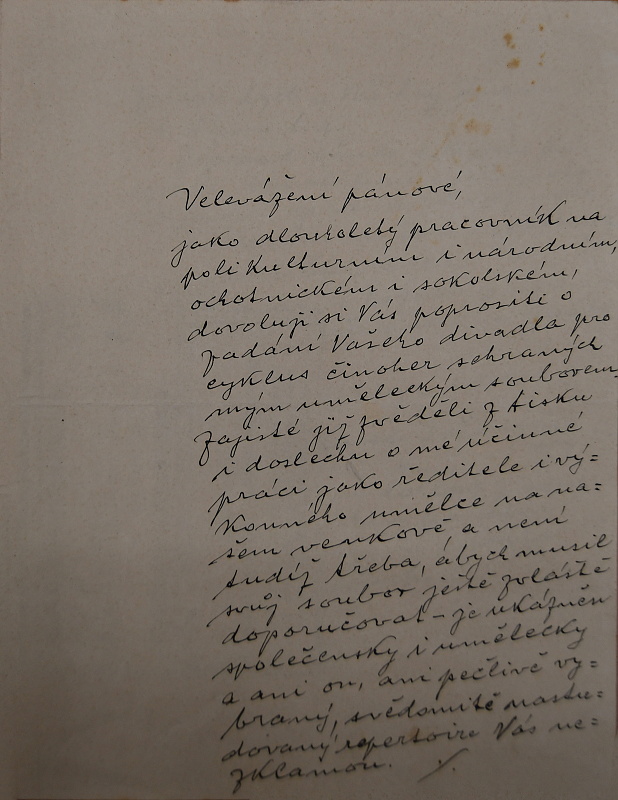 Velevážení pánové,
jako dlouholetý pracovník na
poli kulturním i národním,
ochotnickém i sokolském,
dovoluji si Vás poprositi o
zadání Vašeho divadla pro
cyklus činoher sehraných
mým uměleckým souborem.
Zajisté již zvěděli z tisku
i doslechu o mé účinné
práci jako ředitele i vý=
konného umělce na na=
šem venkově a není
tudíž třeba, abych musil
svůj soubor ještě zvláště
doporučovat - je ukázněn
společensky i umělecky
a ani on, ani pečlivě vy=
braný, svědomitě nastu=
dovaný repertoire Vás ne=
zklamou. ./.